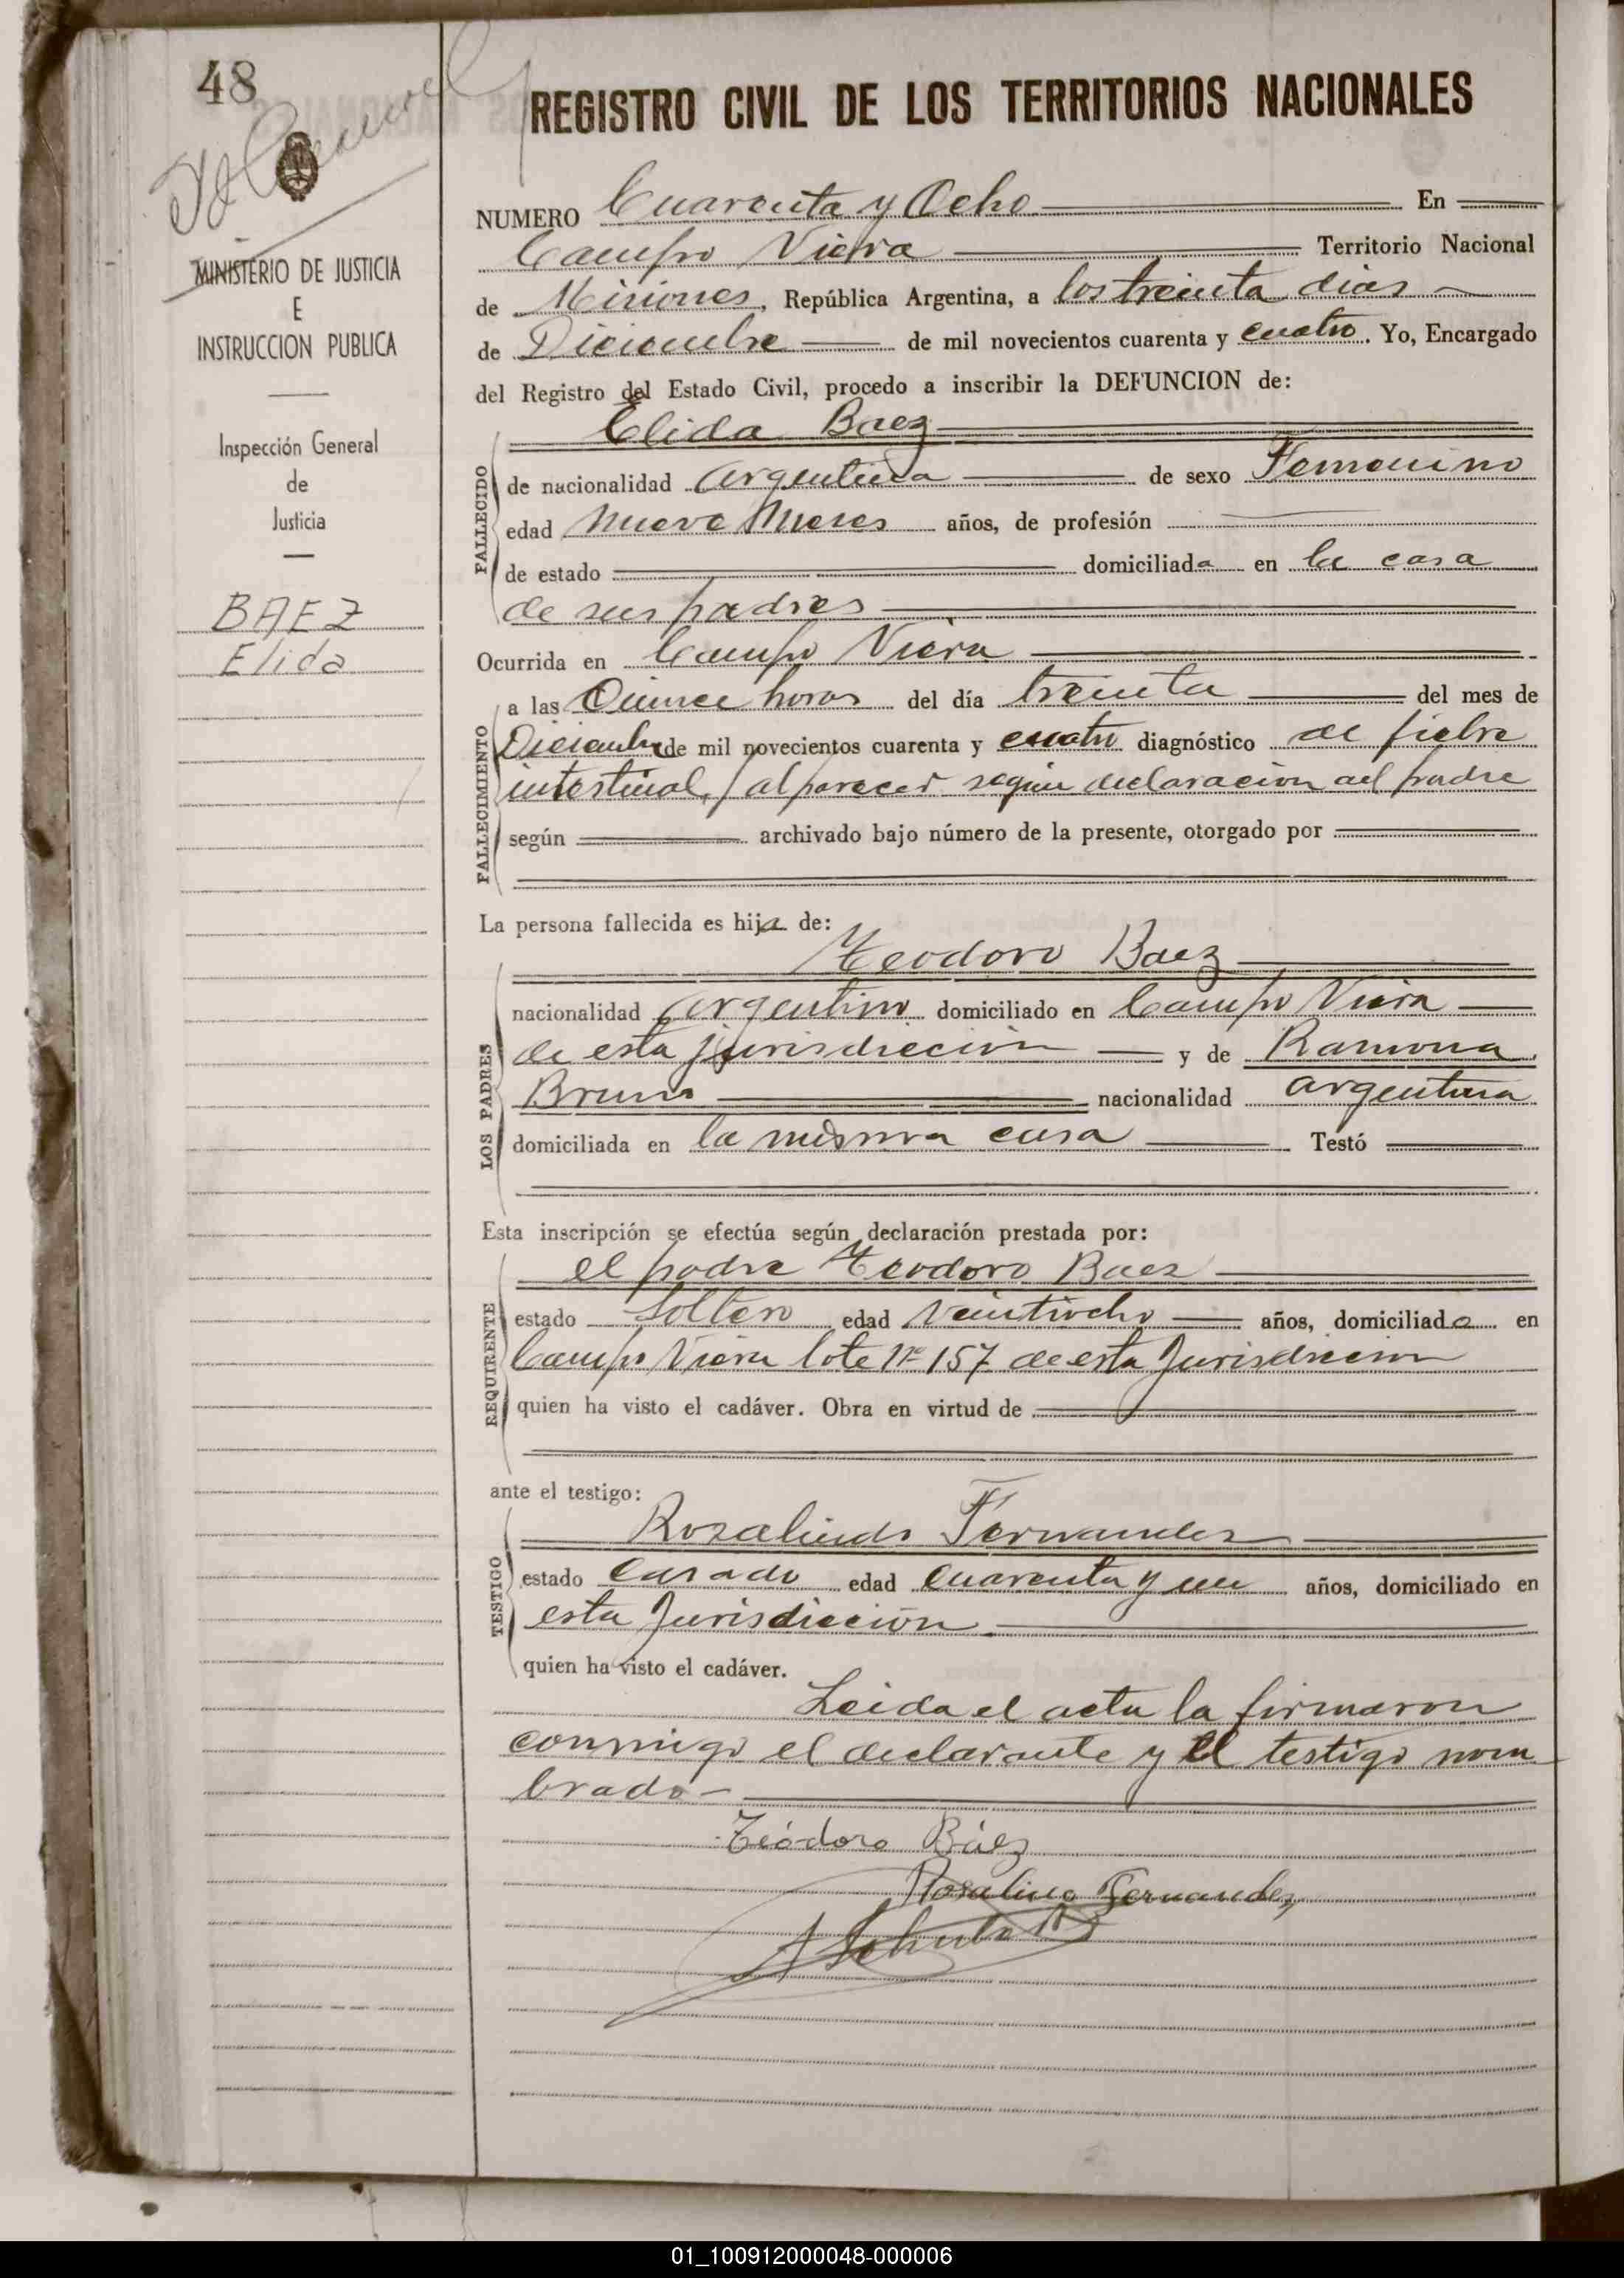 48
REGISTRO CIVIL DE LOS TERRITORIOS NACIONALES
MINISTERIO DE JUSTICIA
E
INSTRUCCION PUBLICA
Inspección General
de
Justicia
BAEZ
Elida
NUMERO Cuarenta y Ocho En
Campo Viera Territorio Nacional
de Misiones, República Argentina, a los treinta dias
de Diciembre de mil novecientos cuarenta y cuatro. Yo, Encargado
del Registro del Estado Civil, procedo a inscribir la DEFUNCION de:
Elida Baez
FALLECIDO
de nacionalidad Argentina de sexo Femenino
edad Nueve Meses años, de profesión
de estado domiciliada en la casa
de sus padres
Ocurrida en Campo Viera
FALLECIMIENTO
a las Quince horas del día treinta del mes de
Diciembre de mil novecientos cuarenta y cuatro diagnóstico de fiebre
intestinal, al parecer segun declaracion del padre
según archivado bajo número de la presente, otorgado por
La persona fallecida es hija de:
Teodoro Baez
LOS PADRES
nacionalidad Argentino domiciliado en Campo Viera
de esta jurisdiccion y de Ramona
Bruno nacionalidad argentina
domiciliada en la misma casa Testó
Esta inscripción se efectúa según declaración prestada por:
el padre Teodoro Baez
REQUIRENTE
estado Soltero edad Veintiocho años, domiciliado en
Campo Viera lote Nº 157 de esta Jurisdiccion
quien ha visto el cadáver. Obra en virtud de
ante el testigo:
Rosalindo Fernandez
TESTIGO
estado Casado edad Cuarenta y un años, domiciliado en
esta Jurisdicción
quien ha visto el cadáver.
Leida el acta la firmaron
conmigo el declarante y el testigo nom
brado-
Teódoro Báez
Rosalino Fernandez
01_100912000048-000006